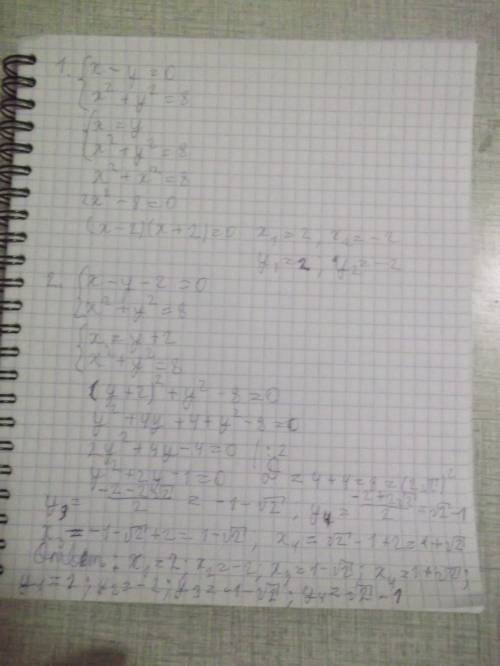 1. { x - y = 0
{ x² + y² = 8
{ x = y
{ x² + y² = 8
x² + x² = 8
2x² - 8 = 0
(x-2)(x+2)=0 x₁ = 2, x₂ = -2
y₁ = 2, y₂ = -2
2. { x - y - 2 = 0
{ x² + y² = 8
{ x = y + 2
{ x² + y² = 8
(y+2)² + y² - 8 = 0
y² + 4y + 4 + y² - 8 = 0
2y² + 4y - 4 = 0 | : 2
y² + 2y - 1 = 0 D = 4 + 4 = 8 = (2√2)²
y₃ = (-2-2√2)/2 = -1-√2, y₄ = (-2+2√2)/2 = √2-1
x₃ = -1-√2+2 = 1-√2, x₄ = √2-1+2 = 1+√2
Ответ: x₁ = 2; x₂ = -2, x₃ = 1-√2; x₄ = 1+√2;
y₁ = 2; y₂ = -2; y₃ = -1-√2; y₄ = √2-1